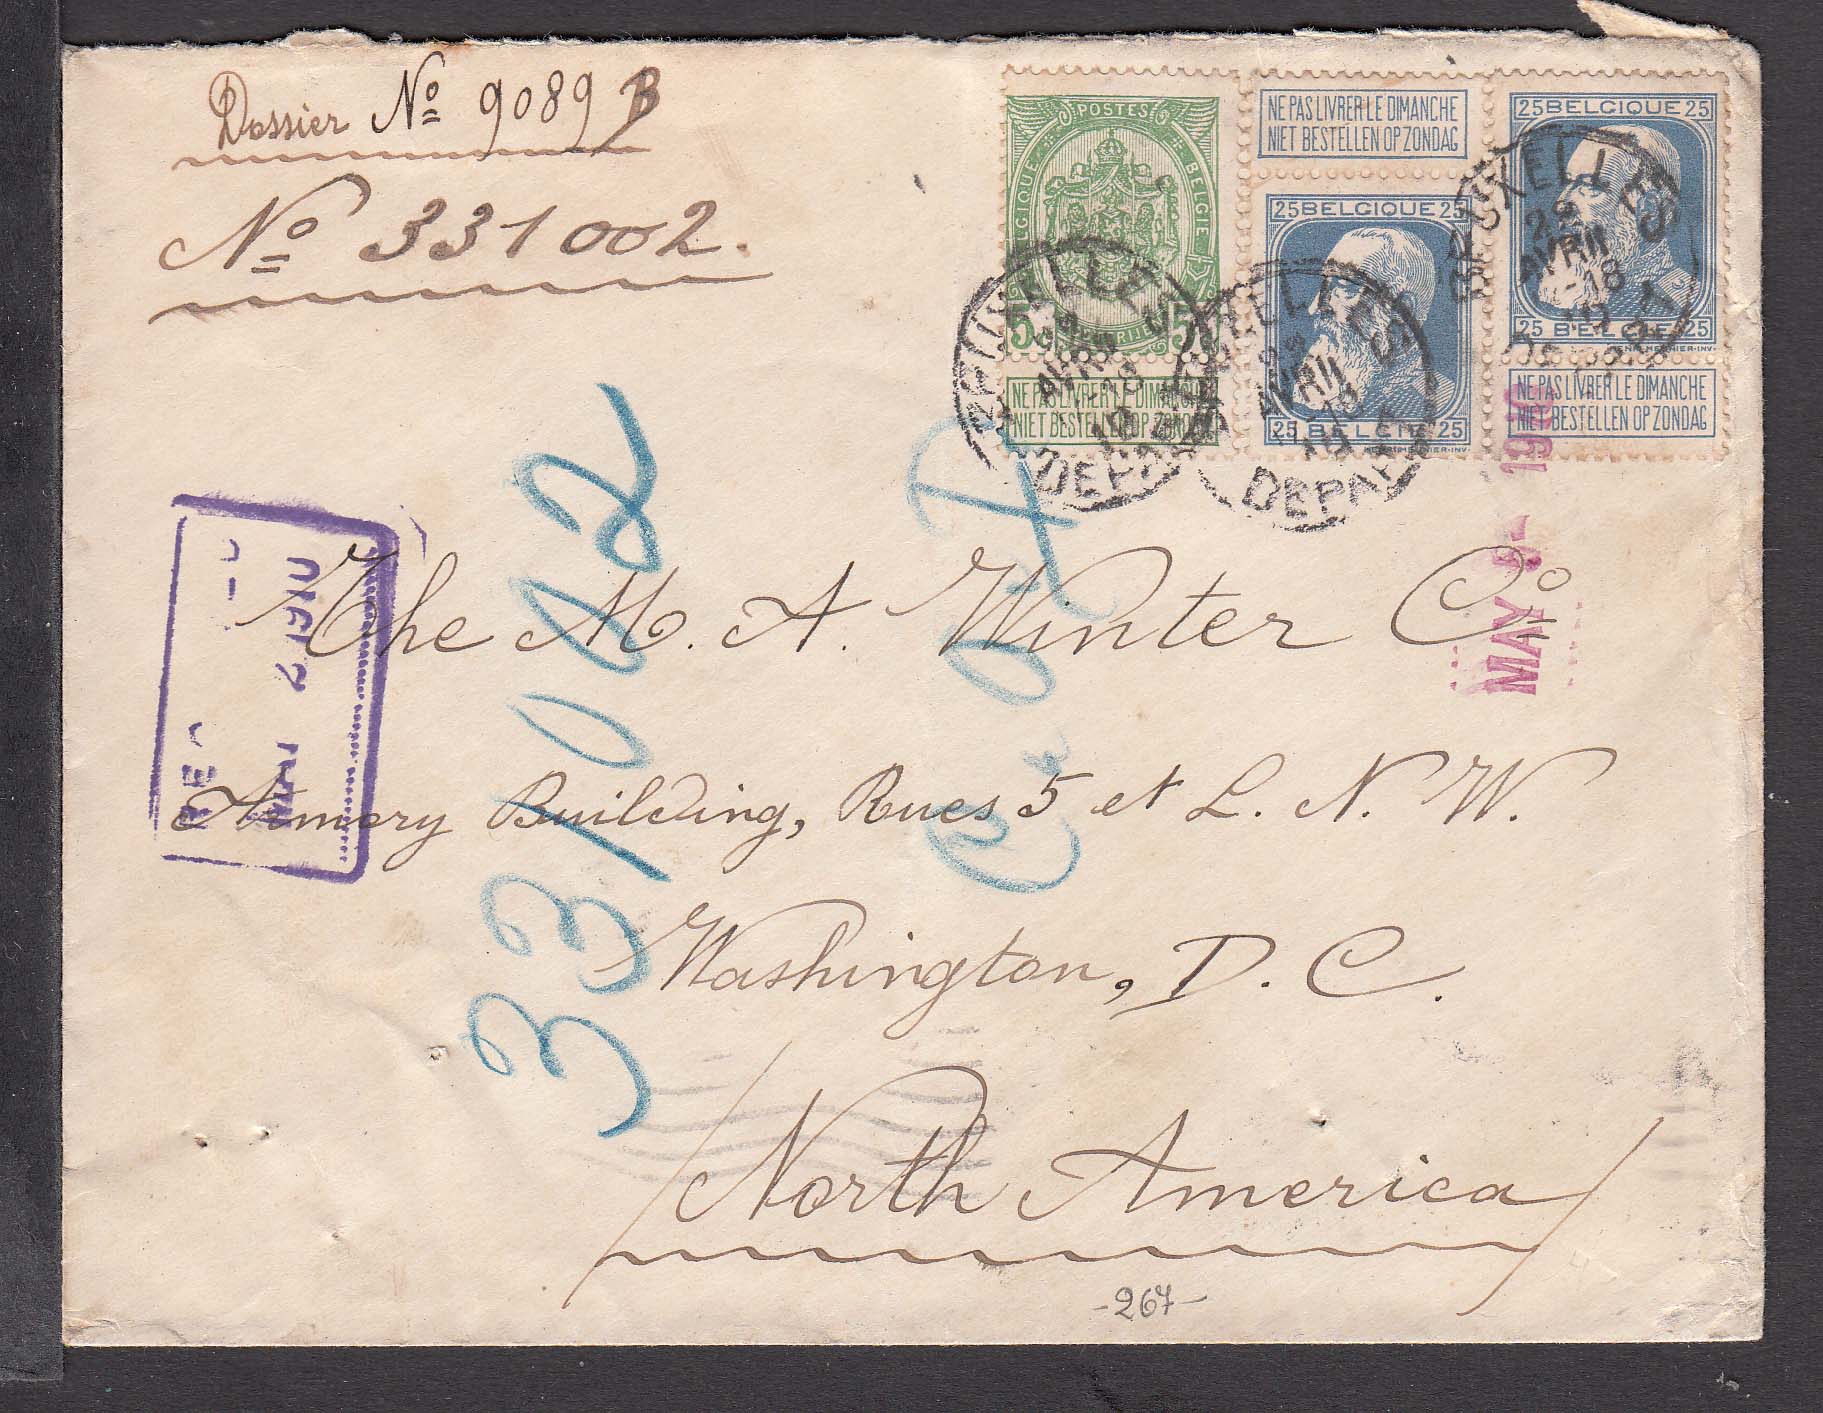 Dossier No 9089 B
No 331002.
POSTES
BELGIQUE BELGIE
5 5
NE PAS LIVRER LE DIMANCHE
NIET BESTELLEN OP ZONDAG
NE PAS LIVRER LE DIMANCHE
NIET BESTELLEN OP ZONDAG
25 BELGIQUE 25
25 BELGIE 25
25 BELGIQUE 25
25 BELGIE 25
NE PAS LIVRER LE DIMANCHE
NIET BESTELLEN OP ZONDAG
BRUXELLES
AVRIL
18
10
DEPART
BRUXELLES
AVRIL
18
10
DEPART
BRUXELLES
22
AVRIL
18
10
DEPART
MAY 2 1910
331002
MAY 1910
The M. A. Winter Co
Armory Building, Rues 5 et L. N. W.
Washington, D. C.
North America
-267-